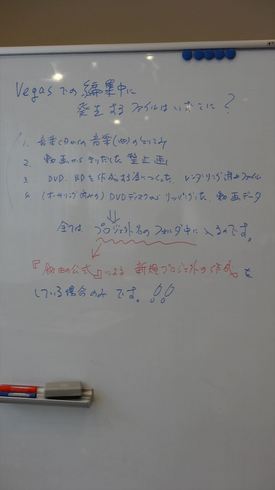 Vegasでの編集中に
発生するファイルはいったいどこに?
1. 音楽CDからの音楽(曲)のとりこみ
2. 動画から切り出した静止画
3. DVD、BDを作成する際につくった レンダリング済みファイル
4. DVDディスクから リッピングした 動画データ
⇓
全ては プロジェクト名のフォルダ中に入るのです。
の公式』による 新規プロジェクトの作成。を
している場合のみ です。!!